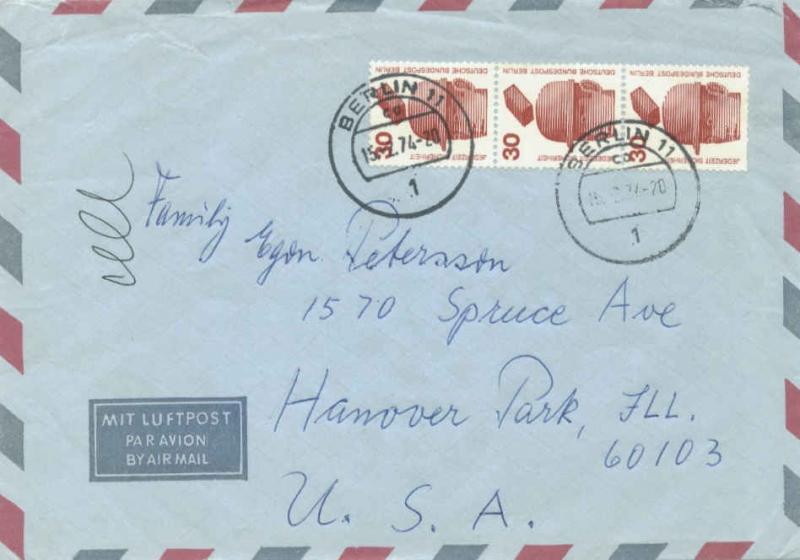 DEUTSCHE BUNDESPOST BERLIN DEUTSCHE BUNDESPOST BERLIN DEUTSCHE BUNDESPOST BERLIN
30 30 30
JEDERZEIT SICHERHEIT
BERLIN 11
cd
15.-2.74-20
1
BERLIN 11
15.-2.74-20
1
Family
Egon Petersson
1570 Spruce Ave
Hanover Park, ILL.
60103
U. S. A.
MIT LUFTPOST
PAR AVION
BY AIR MAIL